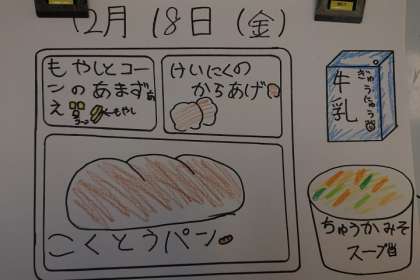 12月18日(金)
もやしとコー
ンのあまず
え
コーン
←もやし
けいにくの
からあげ
ぎゅうにゅう
牛乳
こくとうパン
ちゅうかみそ
スープ